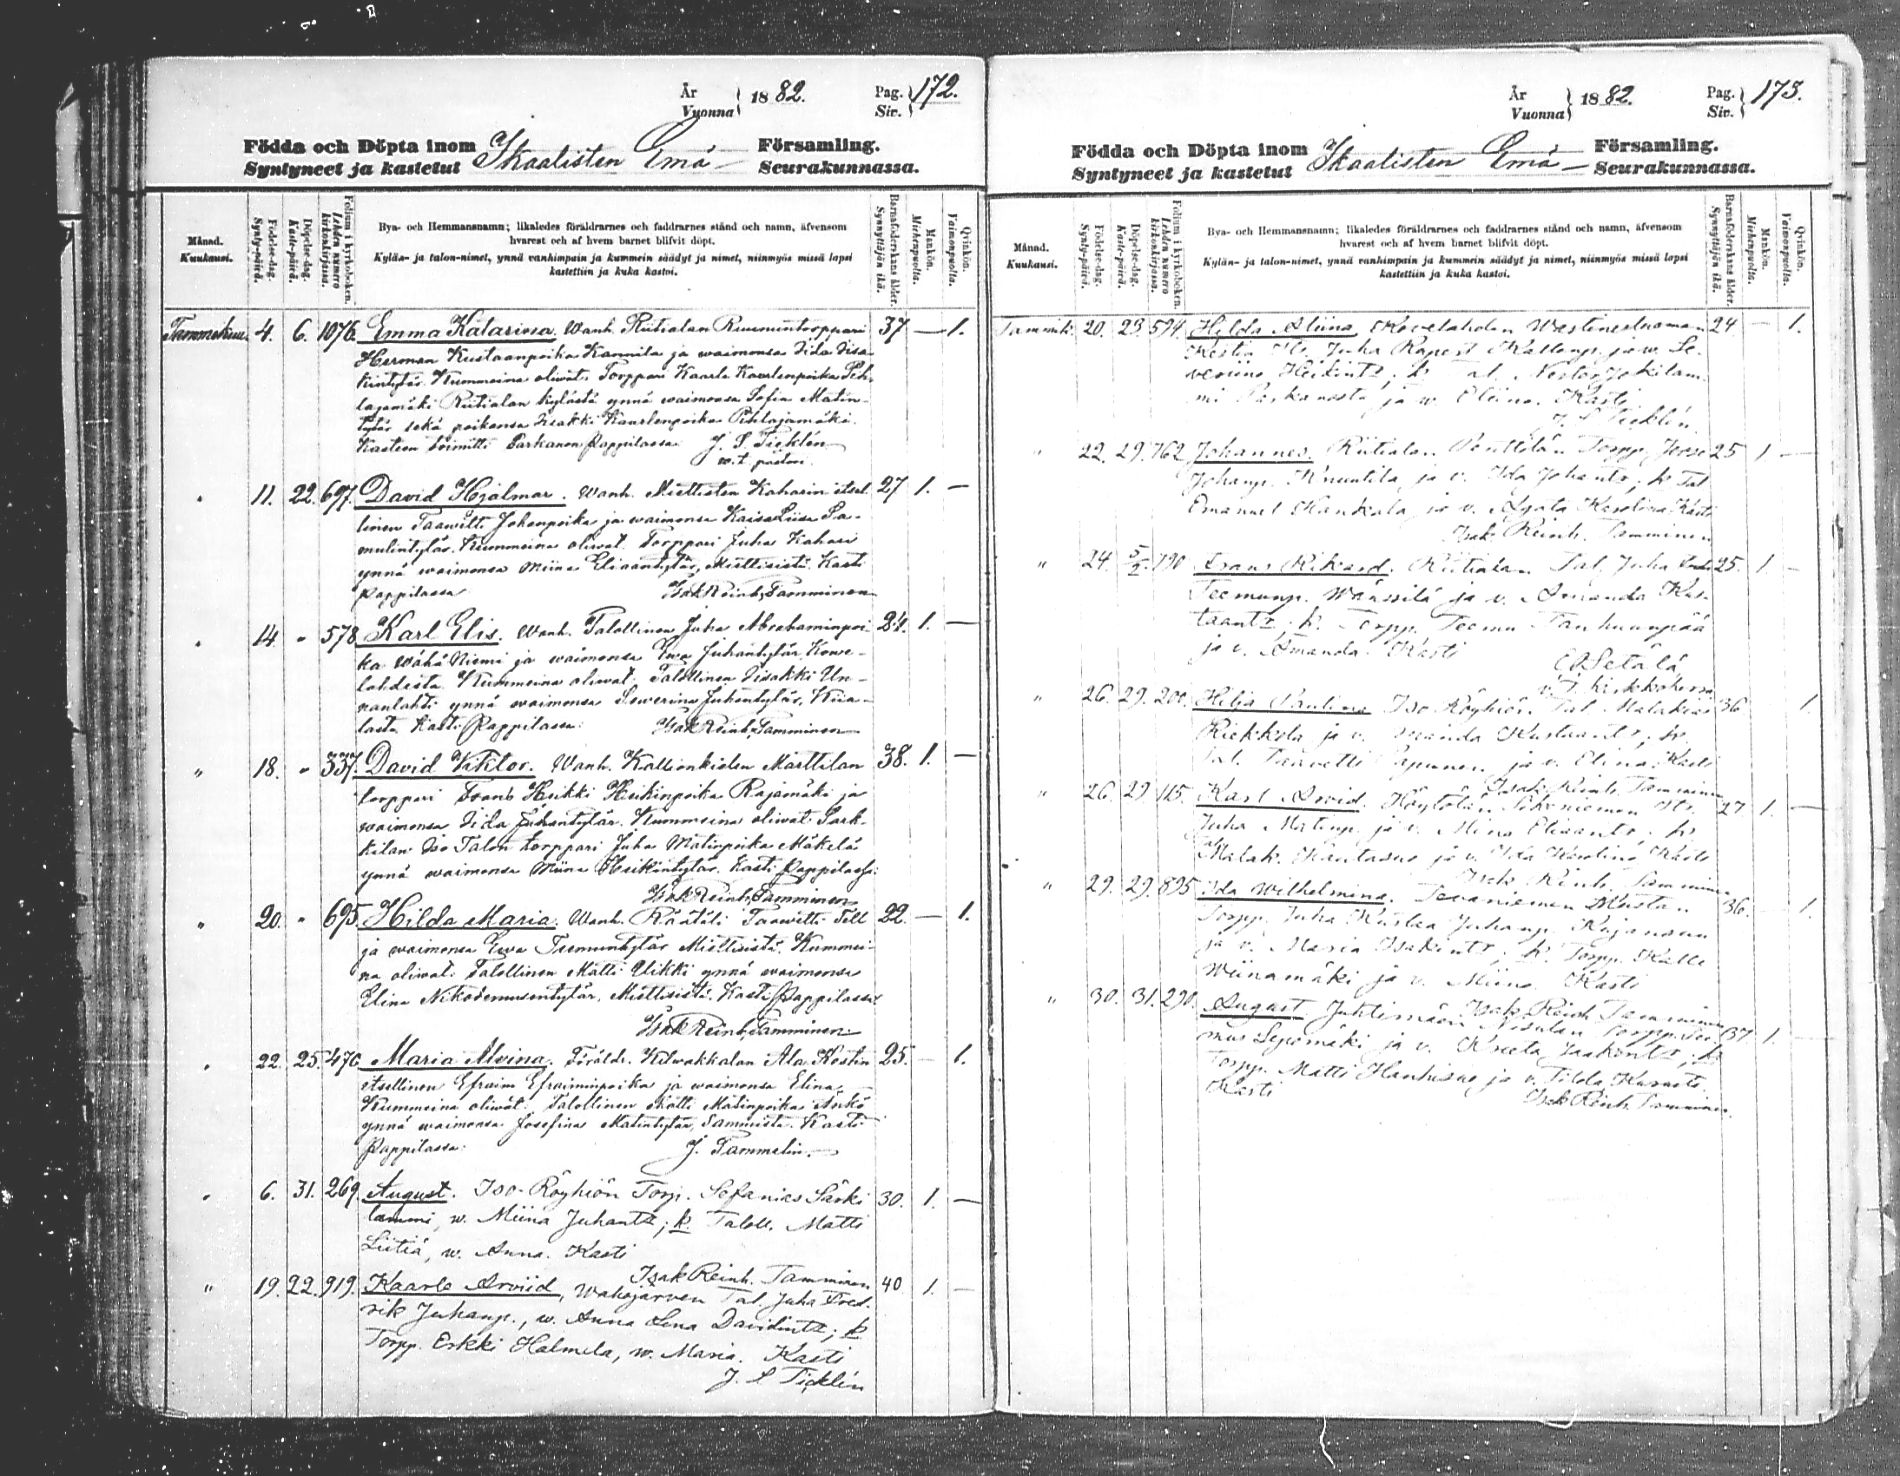 År
Vuonna } 1882.
Pag.
Siv. } 172.
Födda och Döpta inom
Syntyneet ja kastetut
Ikaalisten Emä
Församling.
Seurakunnassa.
Månad.
Kuukausi.
Födelse-dag.
Synty-päivä.
Döpelse-dag.
Kaste-päivä.
Folium i kyrkoboken.
Lehden numero kirkonkirjassa.
Bya- och Hemmansnamn; likaledes föräldrarnes och faddrarnes stånd och namn, äfvensom
hvarest och af hvem barnet blifvit döpt.
Kylän- ja talon-nimet, ynnä vanhimpain ja kummein säädyt ja nimet, niinmyös missä lapsi
kastettiin ja kuka kastoi.
Barnaföderskans ålder.
Synnyttäjän ikä.
Mankön.
Miehenpuolta.
Qvinkön.
Vaimonpuolta.
Tammikuu. 4. 6. 1076. Emma Katarina. Wanh. Riitialan 37 — 1.
Herman Kustaanpoika Kannila ja waimonsa Iida Iisa-
kintytär. Kummeina oliwat: Torppari Kaarle Kaarlenpoika Pih-
lajamäki Riitialan kylästä ynnä waimonsa Sofia Matin-
tytär sekä poikansa Iisakki Kaarlenpoika Pihlajamäki.
Kasteen toimitti Parkanon Pappilassa. J. S. Ticklén
w.t. pastori.
" 11. 22. 697. David Hjalmar. Wanh. Miettisten Kaharin itsel- 27 1. —
linen Taawitti Johanpoika ja waimonsa KaisaLiisa Sa-
mulintytär. Kummeina oliwat: Torppari Juha Kahari
ynnä waimonsa Miina Eliaantytär, Miettisistä. Kasti
Pappilassa Isak Reinh. Tamminen
" 14. " 578. Karl Elis. Wanh. Talollinen Juha Abrahaminpoi- 24. 1. —
ka Wähä Niemi ja waimonsa Ewa Juhantytär, Kowe-
lahdesta. Kummeina oliwat: Talollinen Iisakki Un-
nanlahti ynnä waimonsa Sewerina Juhantytär, Kiia-
lasta. Kasti Pappilassa: Isak Reinh. Tamminen
" 18. " 337. David Viktor. Wanh. Kallionkielen Marttilan 38. 1. —
torppari Frans Heikki Heikinpoika Rajamäki ja
waimonsa Iida Juhantytär. Kummeina oliwat: Sark-
kilan Iso Talon torppari Juha Matinpoika Mäkelä
ynnä waimonsa Miina Heikintytär. Kasti Pappilassa:
Isak Reinh. Tamminen
" 20. " 695. Hilda Maria. Wanh. Räätäli Taawitti Till 22. — 1.
ja waimonsa Ewa Teemuntytär Miettisistä. Kummei-
na oliwat: Talollinen Matti Ulikki ynnä waimonsa
Elina Nikodemusentytär, Miettisistä. Kasti Pappilassa:
Isak Reinh. Tamminen
" 22. 25. 470 Maria Alvina. Föräldr. Kilwakkalan Ala Kostin 25. — 1.
itsellinen Efraim Efraiminpoika ja waimonsa Elina.
Kummeina oliwat: Talollinen Matti Matinpoika
ynnä waimonsa Josefina Matintytär, Sammista. Kasti
Pappilassa: J. Tammelin.
" 6. 31. 269. August. Iso-Röyhiön Torp. Sefanias Särki 30. 1. —
lammi, w. Miina Juhantr; k. Taloll. Matti
Liitiä, w. Anna. Kasti
Isak Reinh. Tamminen
" 19. 22. 919. Kaarle Arviid, Wahojärwen Tal. Juha Fred- 40 1. —
rik Juhanp., w. Anna Lena Davidintr; k.
Torpp. Erkki Halmela, w. Maria. Kasti
J. S Ticklén
År
Vuonna } 1882.
Pag.
Siv. } 173.
Födda och Döpta inom
Syntyneet ja kastetut
Ikaalisten Emä
Församling.
Seurakunnassa.
Månad.
Kuukausi.
Födelse-dag.
Synty-päivä.
Döpelse-dag.
Kaste-päivä.
Folium i kyrkoboken.
Lehden numero kirkonkirjassa.
Bya- och Hemmansnamn; likaledes föräldrarnes och faddrarnes stånd och namn, äfvensom
hvarest och af hvem barnet blifvit döpt.
Kylän- ja talon-nimet, ynnä vanhimpain ja kummein säädyt ja nimet, niinmyös missä lapsi
kastettiin ja kuka kastoi.
Barnaföderskans ålder.
Synnyttäjän ikä.
Mankön.
Miehenpuolta.
Qvinkön.
Vaimonpuolta.
Tammik. 20. 23. 574. Hilda Aliina, Kovelahden 24 — 1.
Juha Kallenp. ja w. Se-
veriina Heikintr; k. Tal. Nestor Jokilam-
mi Parkanosta ja w. Eliina. Kasti
J. S Ticklén.
" 22. 29. 762 Johannes. Riitialan Torpp. 25 1 —
Juhanp. Knuutila ja v. Ida Juhantr; k. Tal
Emanuel Kankala ja v. Agata Karolina Kasti
Isak Reinh. Tamminen
" 24. 5/2. 790 Frans Rikard. Riitialan Tal. Juha 25. 1. —
Teemunp. Wänssilä ja v. Amanda Kus-
taantr; k. Torpp. Teemu Tanhuanpää
ja v. Amanda. Kasti
Setälä
v.t. kirkkoherra
" 26. 29. 200. Hilja Pauliina Iso Röyhiön Tal. Malakias 36 1.
Riekkola ja v. Amanda Kustaantr; k.
Tal. Taavetti Papunen ja v. Elina. Kasti
Isak Reinh. Tamminen
" 26. 29. 115. Karl Arvid. Höytölän 27 1. —
Juha Matinp. ja v. Miina Eliaantr; k.
Malak. ja v. Ida Karolina Kasti
Isak Reinh. Tamminen
" 29. 29. 895 Ida Wilhelmina. Tevaniemen Mustan 36. — 1.
Torpp. Juha Kustaa Juhanp. Rajansuu
ja v. Maria Isakintr; k. Torpp. Kalle
Wiinamäki ja v. Miina. Kasti
Isak Reinh. Tamminen
" 30. 31. 290. August. Juhtimäen Nisulan Torpp. Tee- 37 1. —
mus Leppämäki ja v. Kreeta Jaakontr; k.
Torpp. Matti Hanhisuo ja v. Tilda
Kasti Isak Reinh. Tamminen.